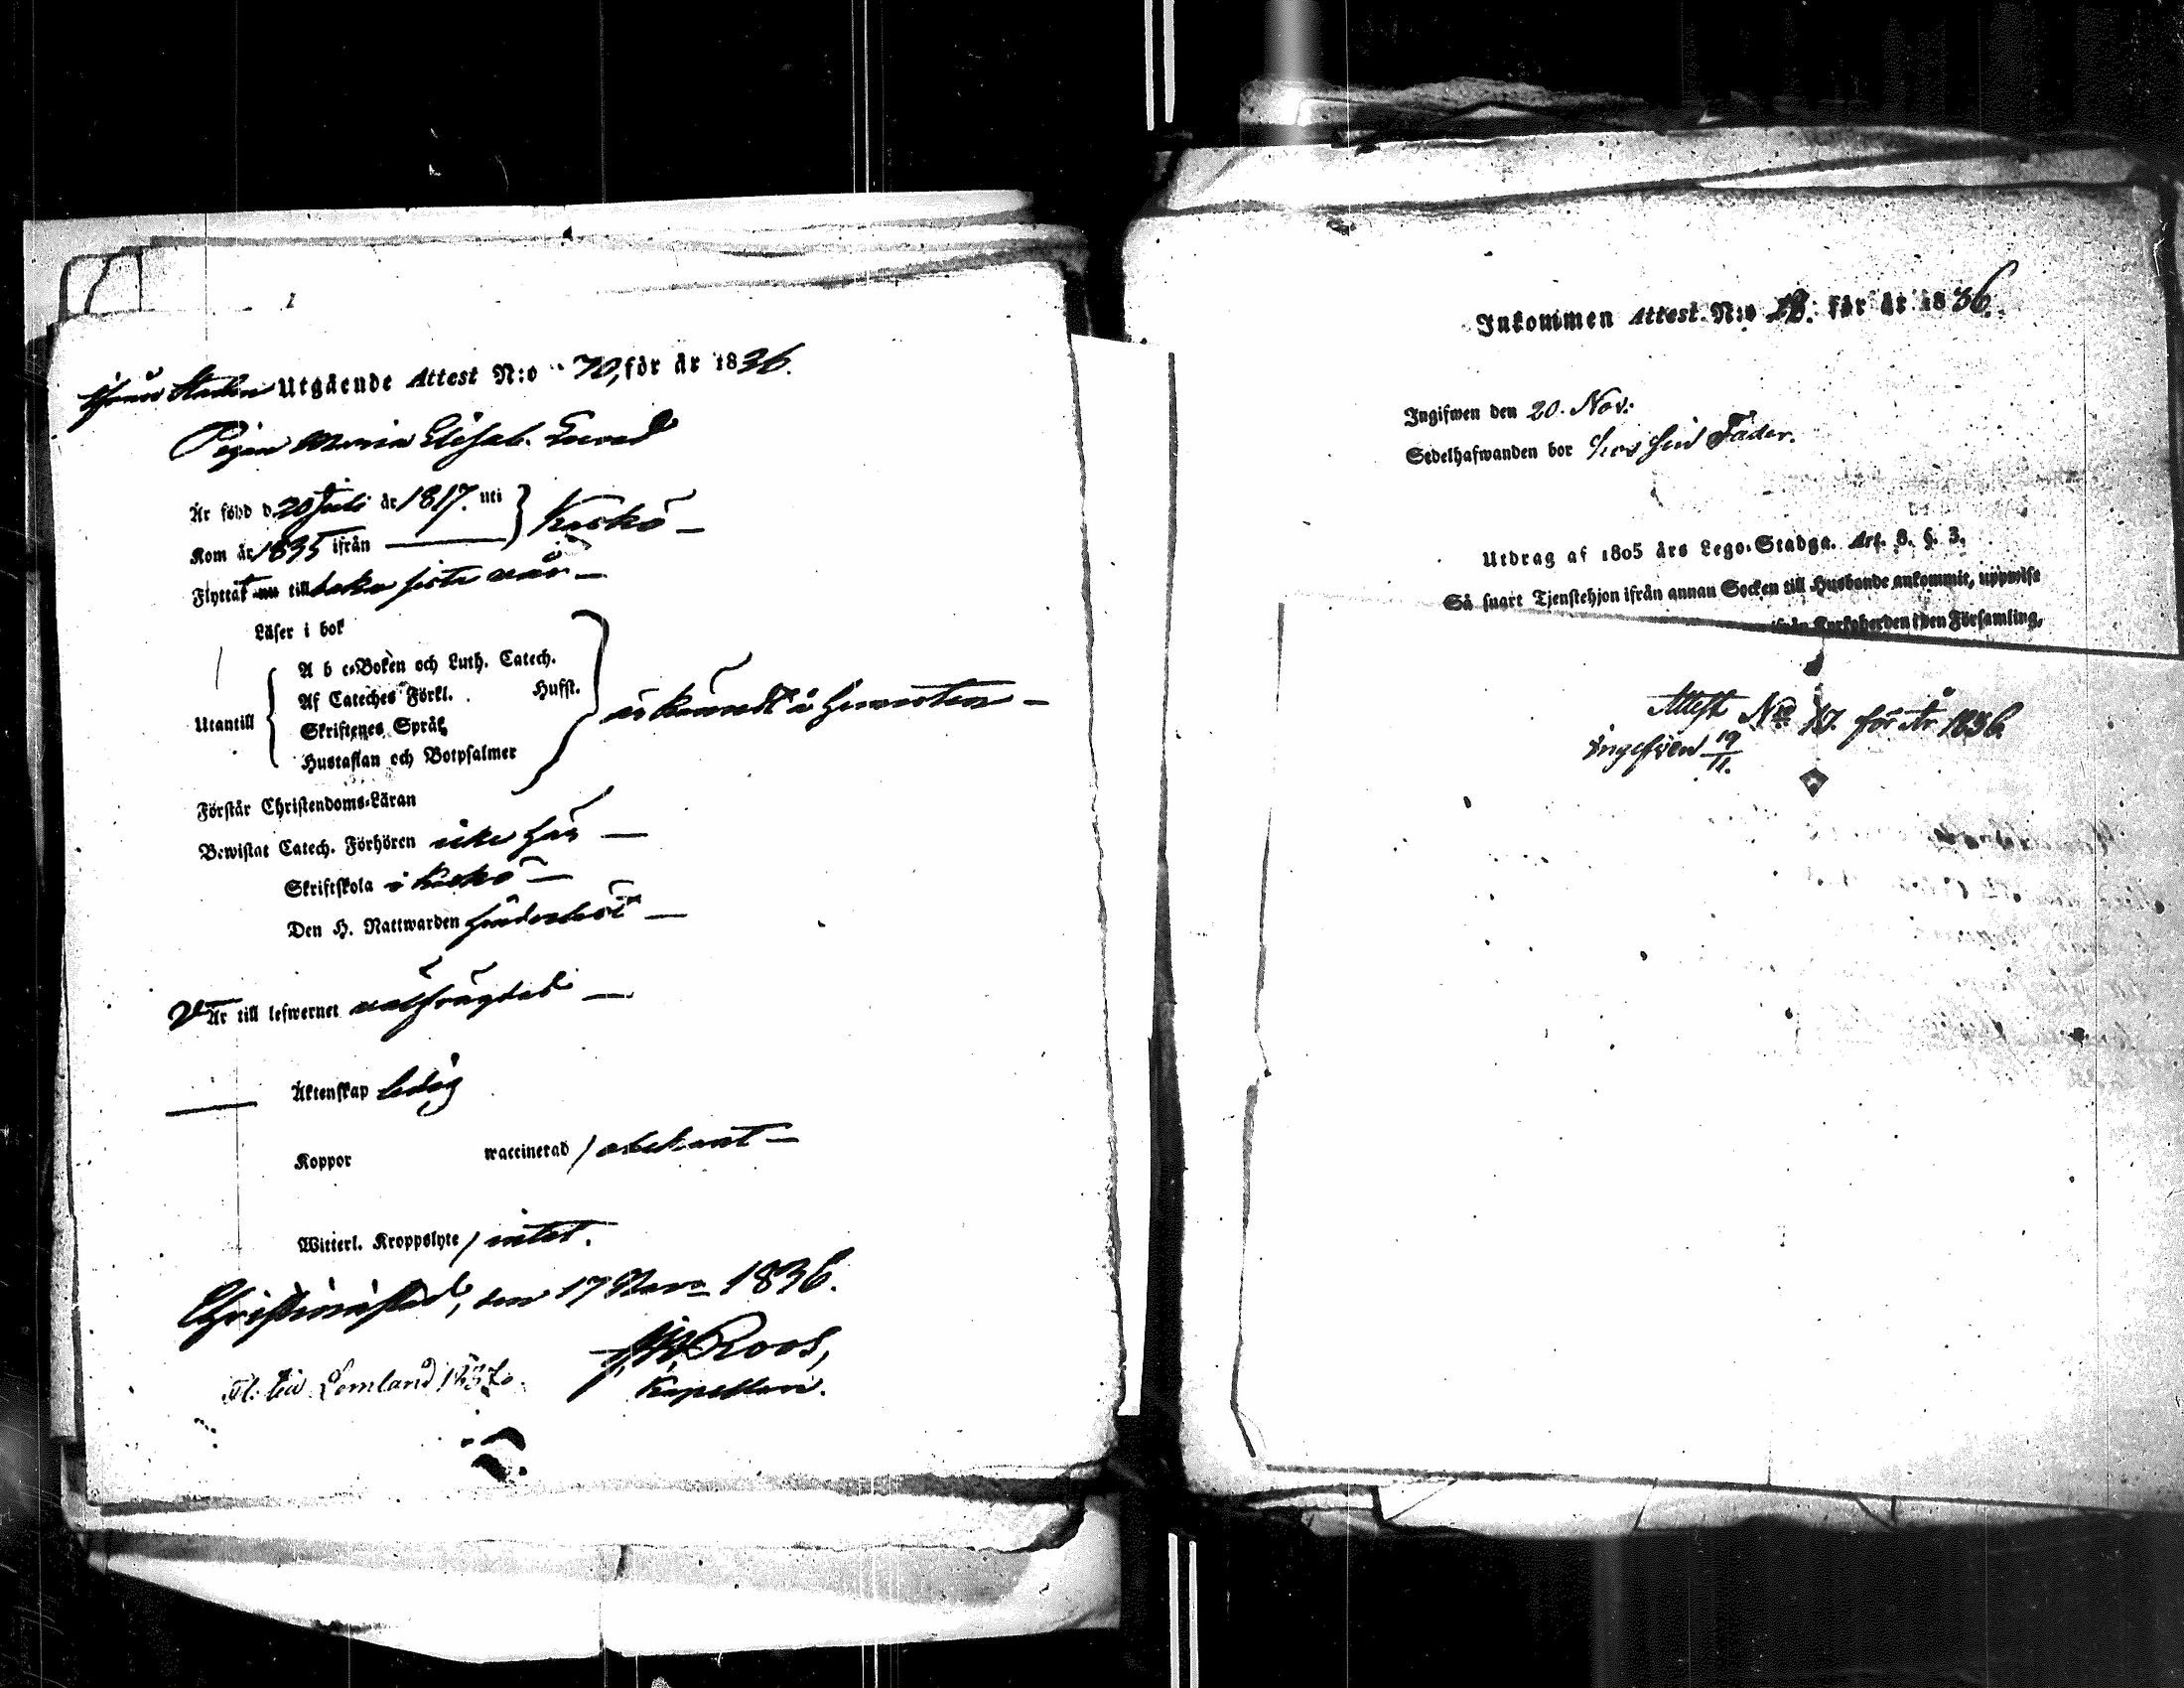 ifrån Staden Utgående Attest N:o 70, för år 1836.
Pigan Maria Elisab.
Är född d. 20 Juli år 1817. uti
Kaskö –
Kom år 1835 ifrån
Flyttat nu tillbaka sista vår –
Läser i bok
A b c-Boken och Luth. Catech.
Af Cateches Förkl. Husft.
Utantill
Skriftenes Språk
Hustaflan och Botpsalmer
är kändt i hemorten –
Förstår Christendoms-Läran
Bewistat Catech. Förhören icke här –
Skriftskola i Kaskö –
Den H. Nattwarden
Är till lefwernet välfrägdad –
Äktenskap ledig
Koppor waccinerad / obekant –
Witterl. Kroppslyte / intet.
Christinestad, den 17 Nov. 1836.
Roos,
Kapellan.
Fl. till Lemland
Inkommen Attest N:o 18. för år 1836.
Ingifwen den 20. Nov.
Sedelhafwanden bor hos sin Fader.
Utdrag af 1805 års Lego-Stadga. Art. 8. §. 3.
Så snart Tjenstehjon ifrån annan Socken till Husbonde ankommit, uppwise
ifrån Kyrkoherden i den Församling,
Attest No 17. för År 1836.
ingifven 19/11.